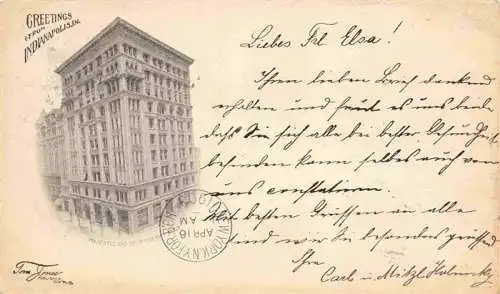 GREETINGS
FROM
INDIANAPOLIS, IN.
Liebes Frl. Elsa!
Ihren lieben Brief dankend
erhalten und freut es uns beide
daß Sie sich alle bei bester Gesundheit
befinden kann selbes auch von
uns constatiren.
Mit besten Grüssen an alle
sind wir Sie besonders grüssend
Ihre
Carl u. Mitzl
MAJESTIC
N.Y.
APR 16
AM
Tom Jones